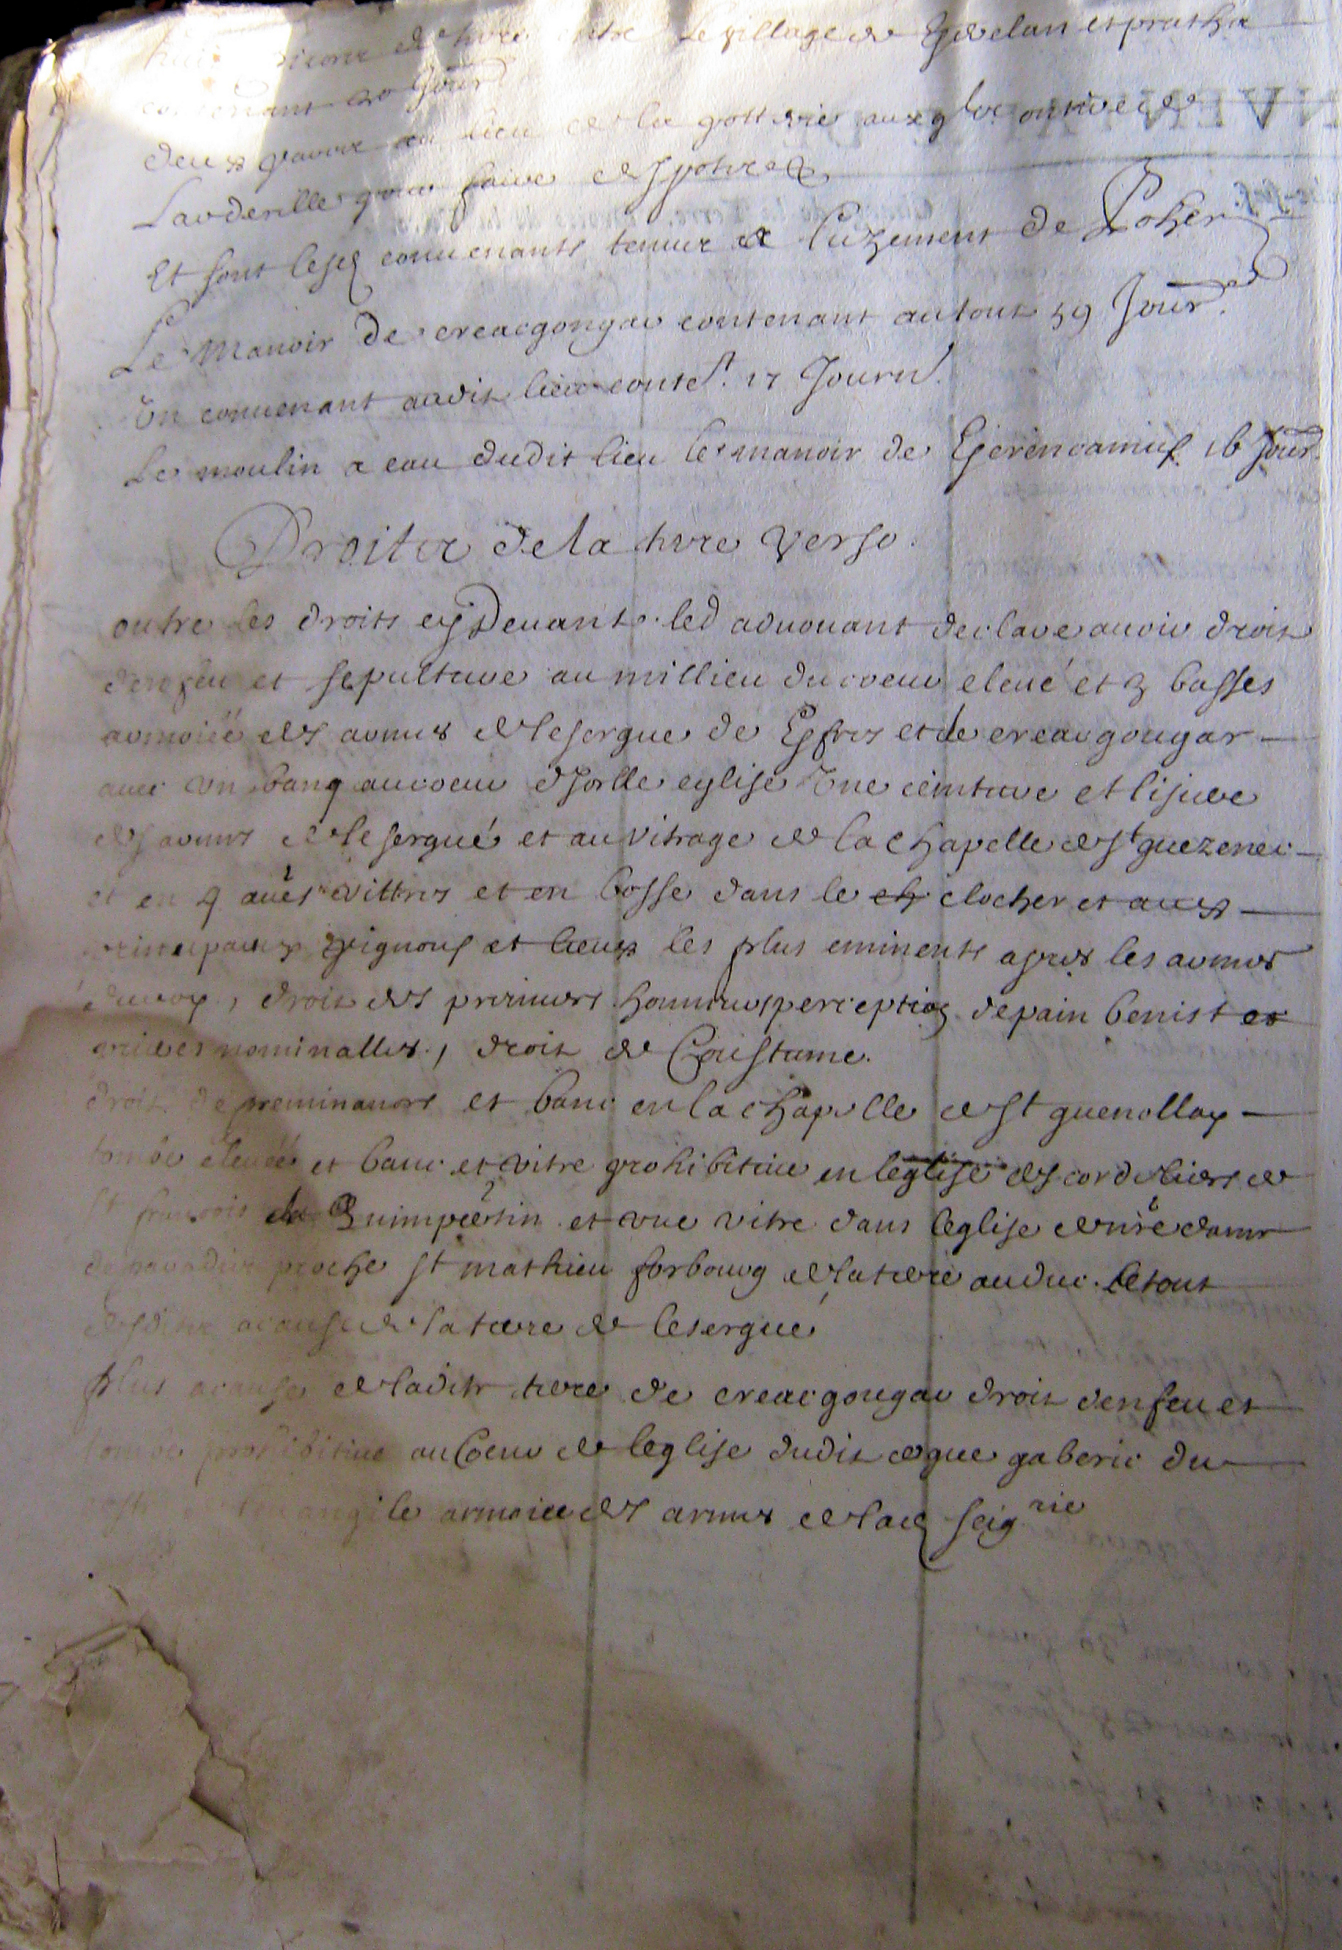 entre le village de
contenant 20 Jour
deux
Et sont lesd convenants tenur a Luzement de Poher
Le Manoir de creacgongar contenant autout 59 Jour.
Un convenant audit lieu conten.t 17 Journ.
Le moulin a eau dudit lieu le manoir de 16 Jour.
Droitz de la terre verso.
outre les droits cy devant led advouant declare avoir droit
et sepulture au millieu du coeur elevé et 3 basses
armoiié des armes de lesergue de et de creacgougar
avec un banq au coeur eglise Une ceinture et lisiere
des armes de lesergué et au vitrage de la chapelle de st guezenec
et en 4 au.es vittres et en bosse dans le ch clocher et aux
principaux pignons et lieux les plus eminents apres les armes
du roy, droit des premiers honneurs perception de pain benist et
prieres nominalles, droit de Coustume.
droit de preminances et banc en la chapelle de st guenollay
tombe elevée et banc et vitre prohibitive en leglise des cordeliers de
st francois de Quimper tin et une vitre dans leglise de n.re dame
de paradis proche st mathieu forbourg de la terre au duc. le tout
a cause de la terre de lesergué
plus a cause de ladite terre de creacgougar droit denfeu et
tombe prohibitive au Coeur de leglise dudit ergue gaberic du
costé de levangile armoiée des armes de lad seig.rie